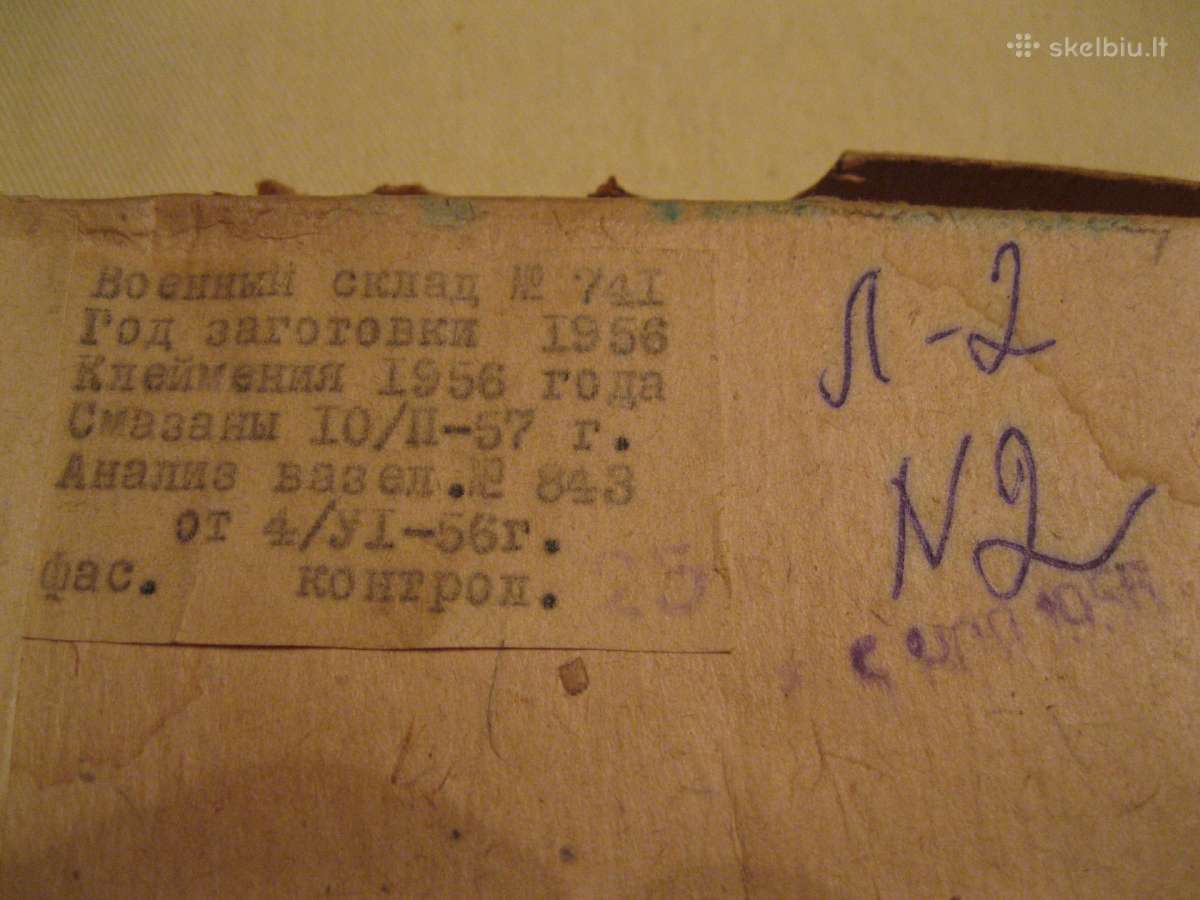 skelbiu.lt
Военный склад № 741
Год заготовки 1956
Клеймения 1956 года
Смазаны 10/II-57 г.
Анализ вазел.№ 843
от 4/УI-56г.
фас. контрол. 25
Л-2
N2